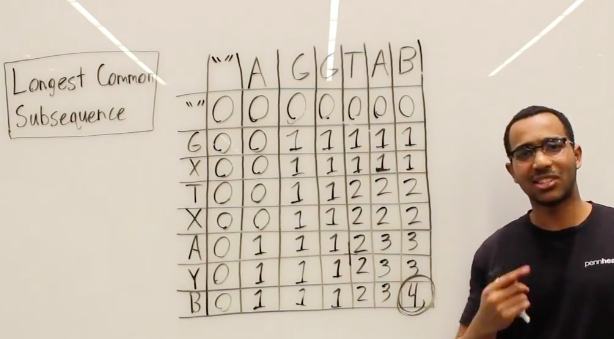 Longest Common
Subsequence
"" A G G T A B
"" 0 0 0 0 0 0 0
G 0 0 1 1 1 1 1
X 0 0 1 1 1 1 1
T 0 0 1 1 2 2 2
X 0 0 1 1 2 2 2
A 0 1 1 1 2 3 3
Y 0 1 1 1 2 3 3
B 0 1 1 1 2 3 4